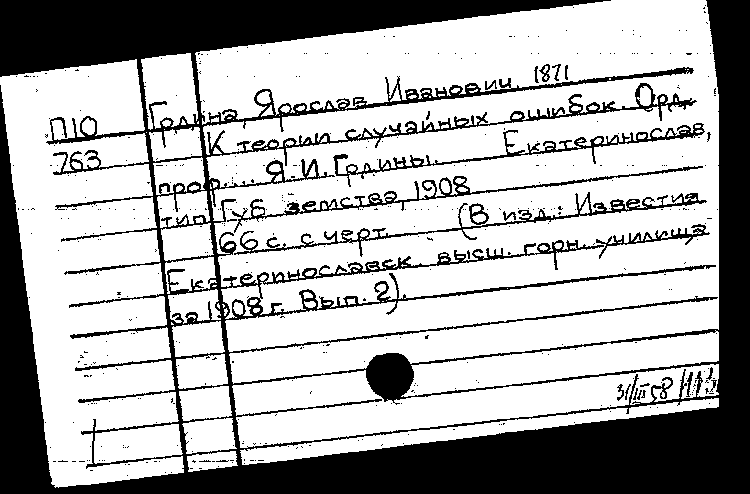 П10 Грдина, Ярослав Иванович. 1871
763 К теории случайных ошибок. Орд.
проф.... Я.И. Грдины. Екатеринослав,
тип. Губ. земства, 1908
66 с. с черт. (В изд.: Известия
Екатеринославск. высш. горн. училища
за 1908 г. Вып. 2).
31/III 58